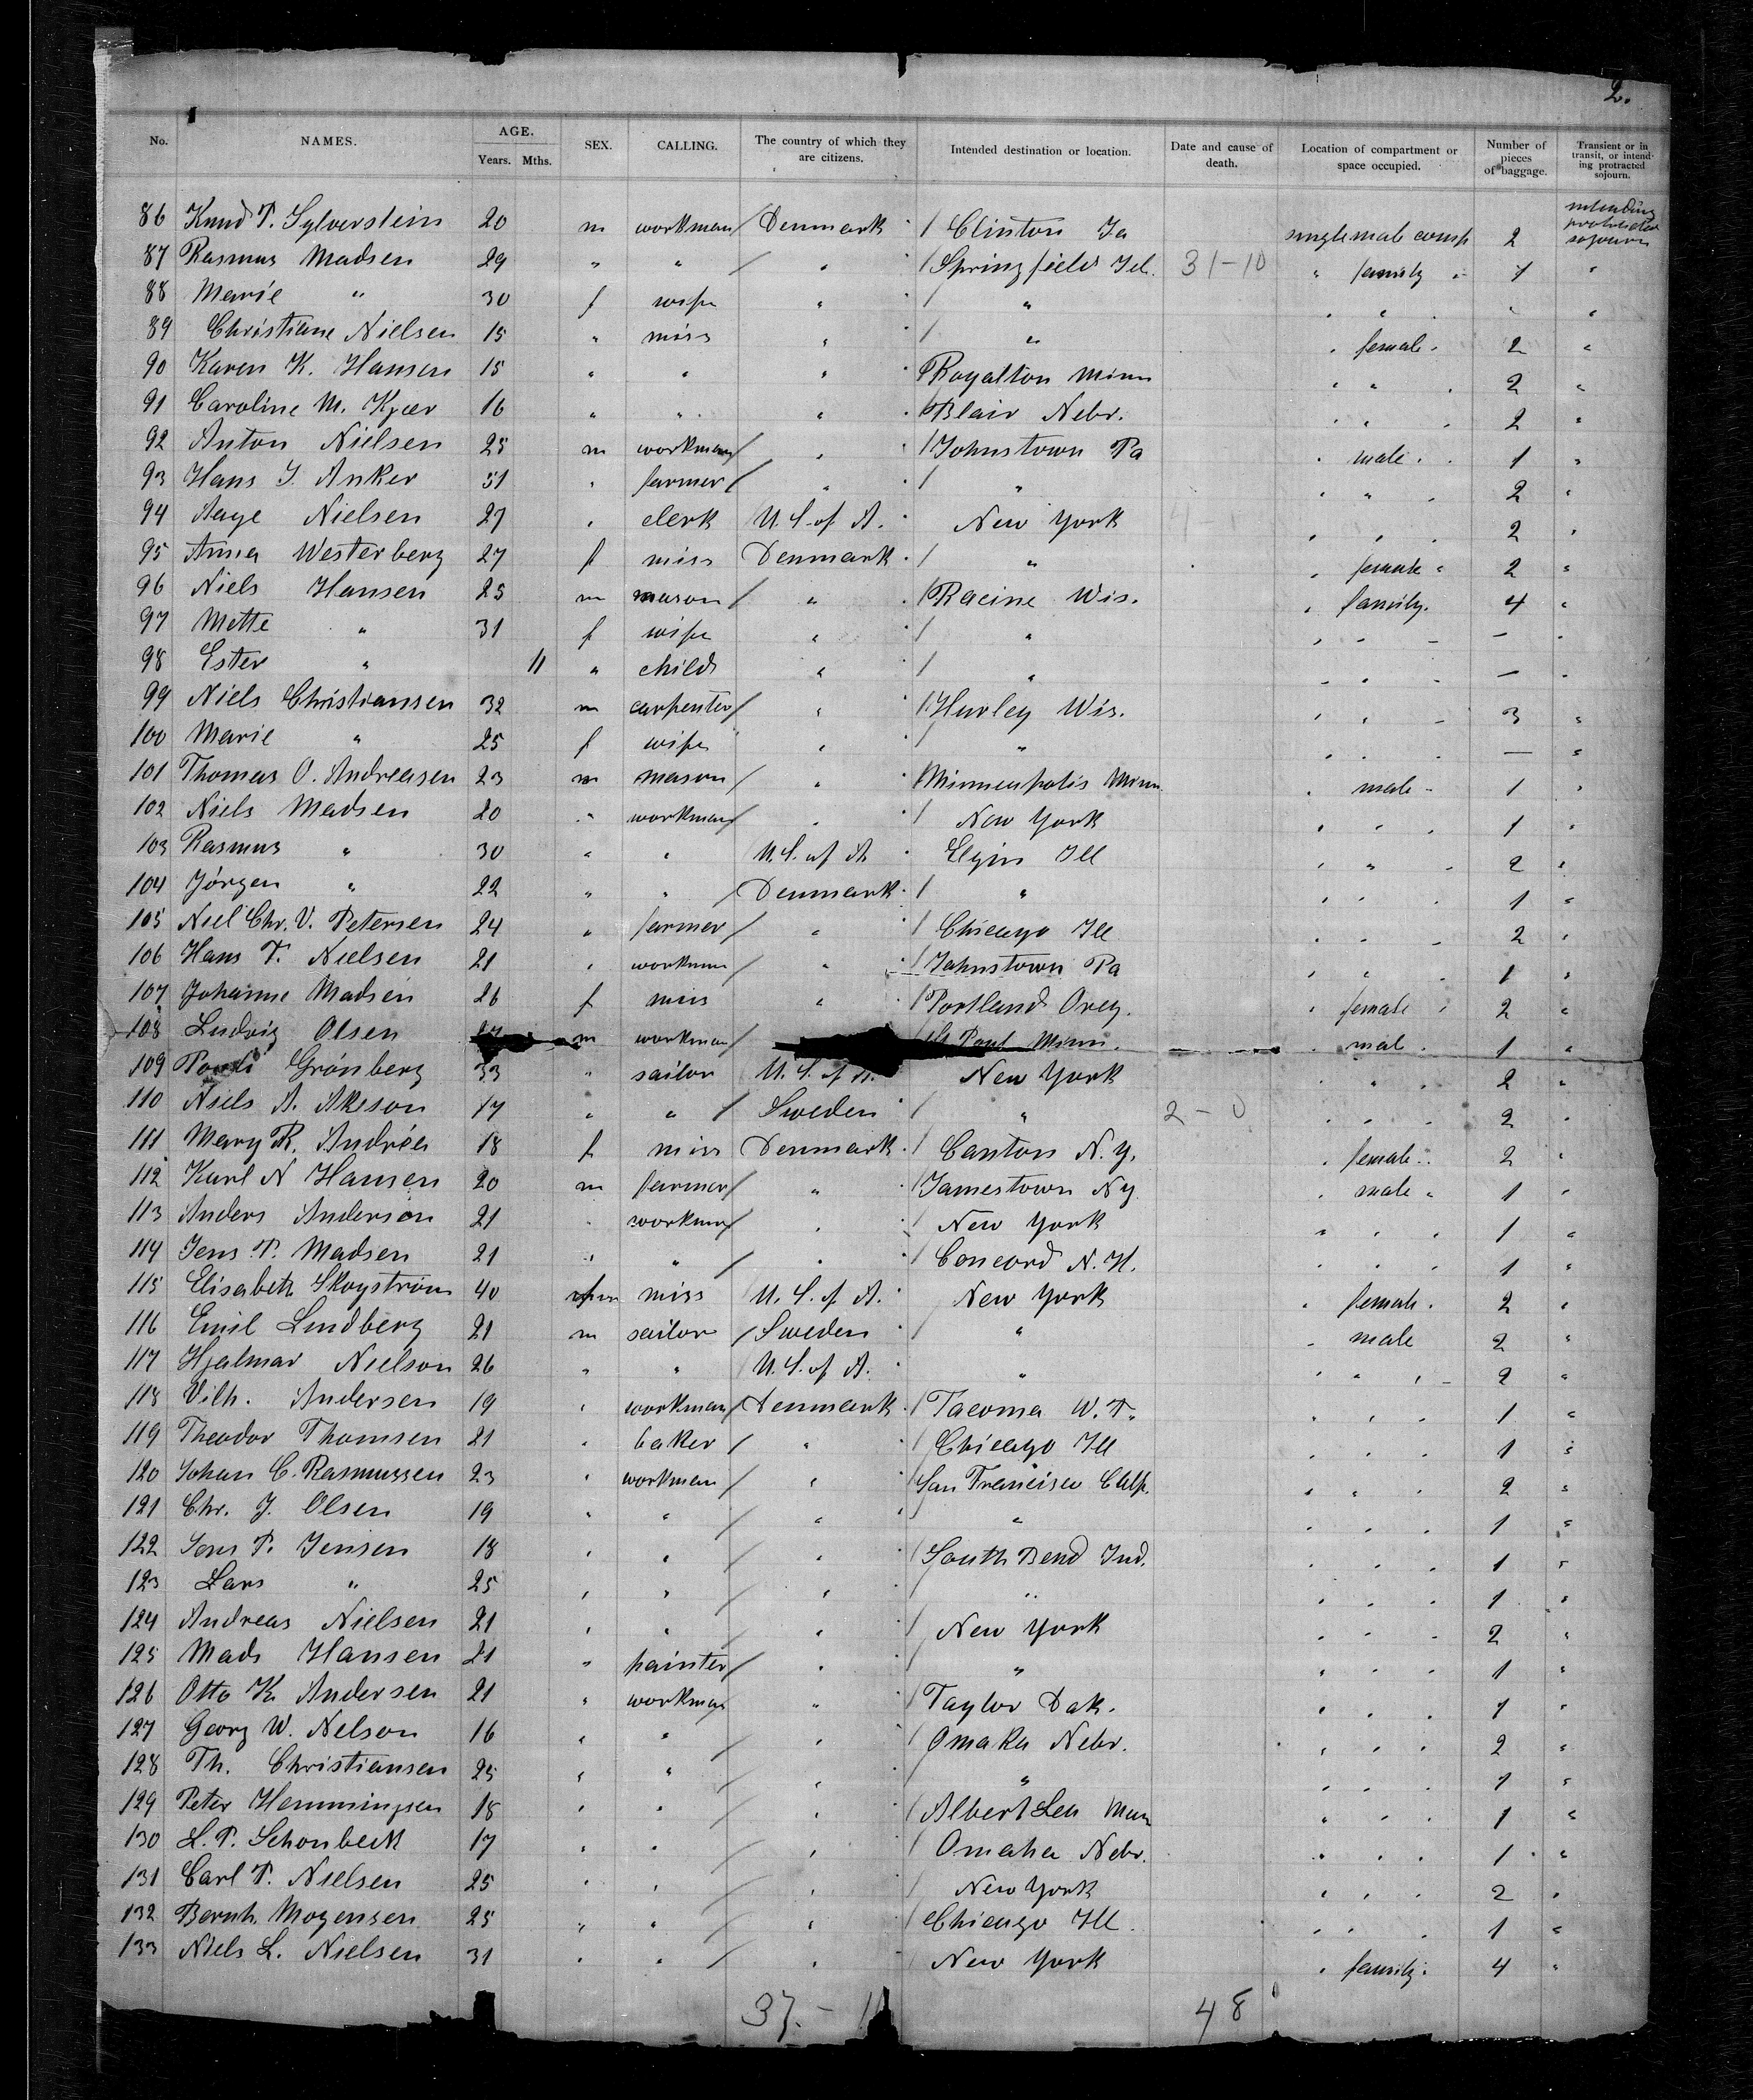 2.
No. NAMES. AGE. Years. Mths. SEX. CALLING. The country of which they are citizens. Intended destination or location. Date and cause of death. Location of compartment or space occupied. Number of pieces of baggage. Transient or in transit, or intending protracted sojourn.
86 Knud P. Sylverstein 20 m workman / Denmark / Clinton Ia single male comp 2 intending protracted sojourn
87 Rasmus Madsen 29 " " / " / Springfield Ill. 31-10 " family " 1 "
88 Marie " 30 f wife " / " " " " "
89 Christiane Nielsen 15 " miss " / " " female " 2 "
90 Karen K. Hansen 15 " " " / Royalton Minn " " " 2 "
91 Caroline M. Kjær 16 " " " / Blair Nebr. " " " 2 "
92 Anton Nielsen 25 m workman / " / Johnstown Pa " male " 1 "
93 Hans J. Anker 51 " farmer / " / " " " " 2 "
94 Aage Nielsen 27 " clerk U.S. of A. New York " " " 2 "
95 Anna Westerberg 27 f miss Denmark / " " female " 2 "
96 Niels Hansen 25 m mason / " / Racine Wis. " family. 4 "
97 Mette " 31 f wife " / " " " " — "
98 Ester " 11 " child " / " " " " — "
99 Niels Christiansen 32 m carpenter / " / Hurley Wis. " " " 3 "
100 Marie " 25 f wife " / " " " " — "
101 Thomas O. Andreasen 23 m mason / " / Minneapolis Minn. " male " 1 "
102 Niels Madsen 20 " workman / " / New York " " " 1 "
103 Rasmus " 30 " " U.S. of A Elgin Ill " " " 2 "
104 Jørgen " 22 " " / Denmark / " " " " 1 "
105 Niel Chr. V. Petersen 24 " farmer / " / Chicago Ill " " " 2 "
106 Hans P. Nielsen 21 " workman / " / Johnstown Pa " " " 1 "
107 Johanne Madsen 26 f miss " / Portland Oreg. " female " 2 "
108 Ludvig Olsen m workman / / St Paul Minn. " male " 1 "
109 Grønberg 33 " sailor U.S. of A. New York " " " 2 "
110 Niels A. Akeson 17 " " / Sweden / " 2-0 " " " 2 "
111 Mary R. Andréa 18 f miss Denmark / Canton N.Y. " female " 2 "
112 Karl N Hansen 20 m farmer / " / Jamestown Ny " male " 1 "
113 Anders Anderson 21 " workman / " / New York " " " 1 "
114 Jens P. Madsen 21 " " / " / Concord N.H. " " " 1 "
115 Elisabeth Skogstrøm 40 f miss U.S. of A. New York " female " 2 "
116 Emil Lindberg 21 m sailor / Sweden / " " male 2 "
117 Hjalmar Nielson 26 " " U.S. of A. " " " " 2 "
118 Vilh. Andersen 19 " workman / Denmark / Tacoma W.T. " " " 1 "
119 Theodor Thomsen 21 " baker / " / Chicago Ill " " " 1 "
120 Johan C. Rasmussen 23 " workman / " / San Francisco Calf. " " " 2 "
121 Chr. J. Olsen 19 " " / " / " " " " 1 "
122 Jens P. Jensen 18 " " / " / South Bend Ind. " " " 1 "
123 Lars " 25 " " / " / " " " " 1 "
124 Andreas Nielsen 21 " " / " / New York " " " 2 "
125 Mads Hansen 21 " painter / " / " " " " 1 "
126 Otto K. Andersen 21 " workman " / Taylor Dak. " " " 1 "
127 Georg W. Nelson 16 " " / " / Omaha Nebr. " " " 2 "
128 Th. Christiansen 25 " " / " / " " " " 1 "
129 Peter Hemmingsen 18 " " / " / Albert Lea Minn " " " 1 "
130 L.P. Schonbeck 17 " " / " / Omaha Nebr. " " " 1 "
131 Carl P. Nielsen 25 " " / " / New York " " " 2 "
132 Bernh. Mogensen 25 " " / " / Chicago Ill. " " " 1 "
133 Niels L. Nielsen 31 " " / " / New York " family " 4 "
37 - 11 48